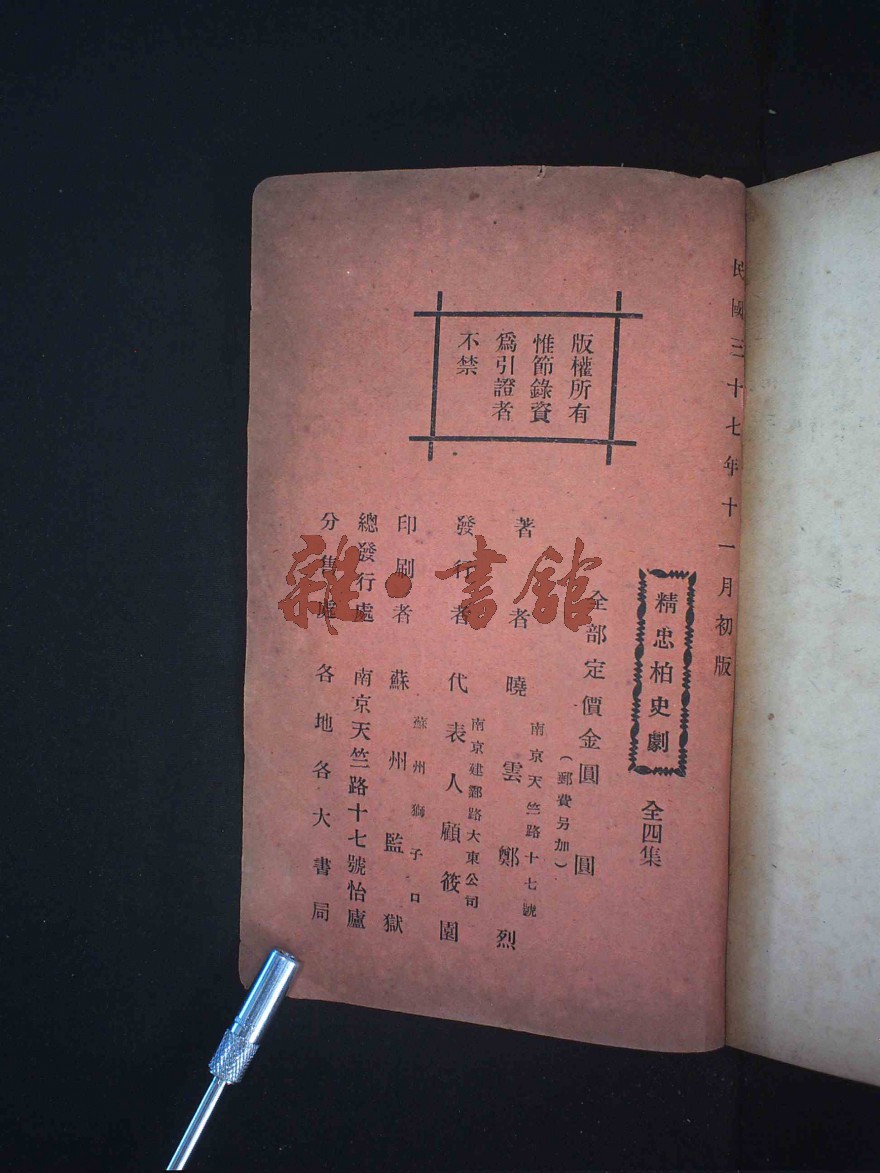 民國三十七年十一月初版
精忠柏史劇 全四集
全部定價金圓 圓
(郵費另加)
南京天竺路十七號
著者 曉雲鄭烈
南京建鄴路大東公司
發行者 代表人顧筱園
蘇州獅子口
印刷者 蘇州監獄
總發行處 南京天竺路十七號怡廬
分售處 各地各大書局
版權所有
惟節錄資
爲引證者
不禁
雜·書館